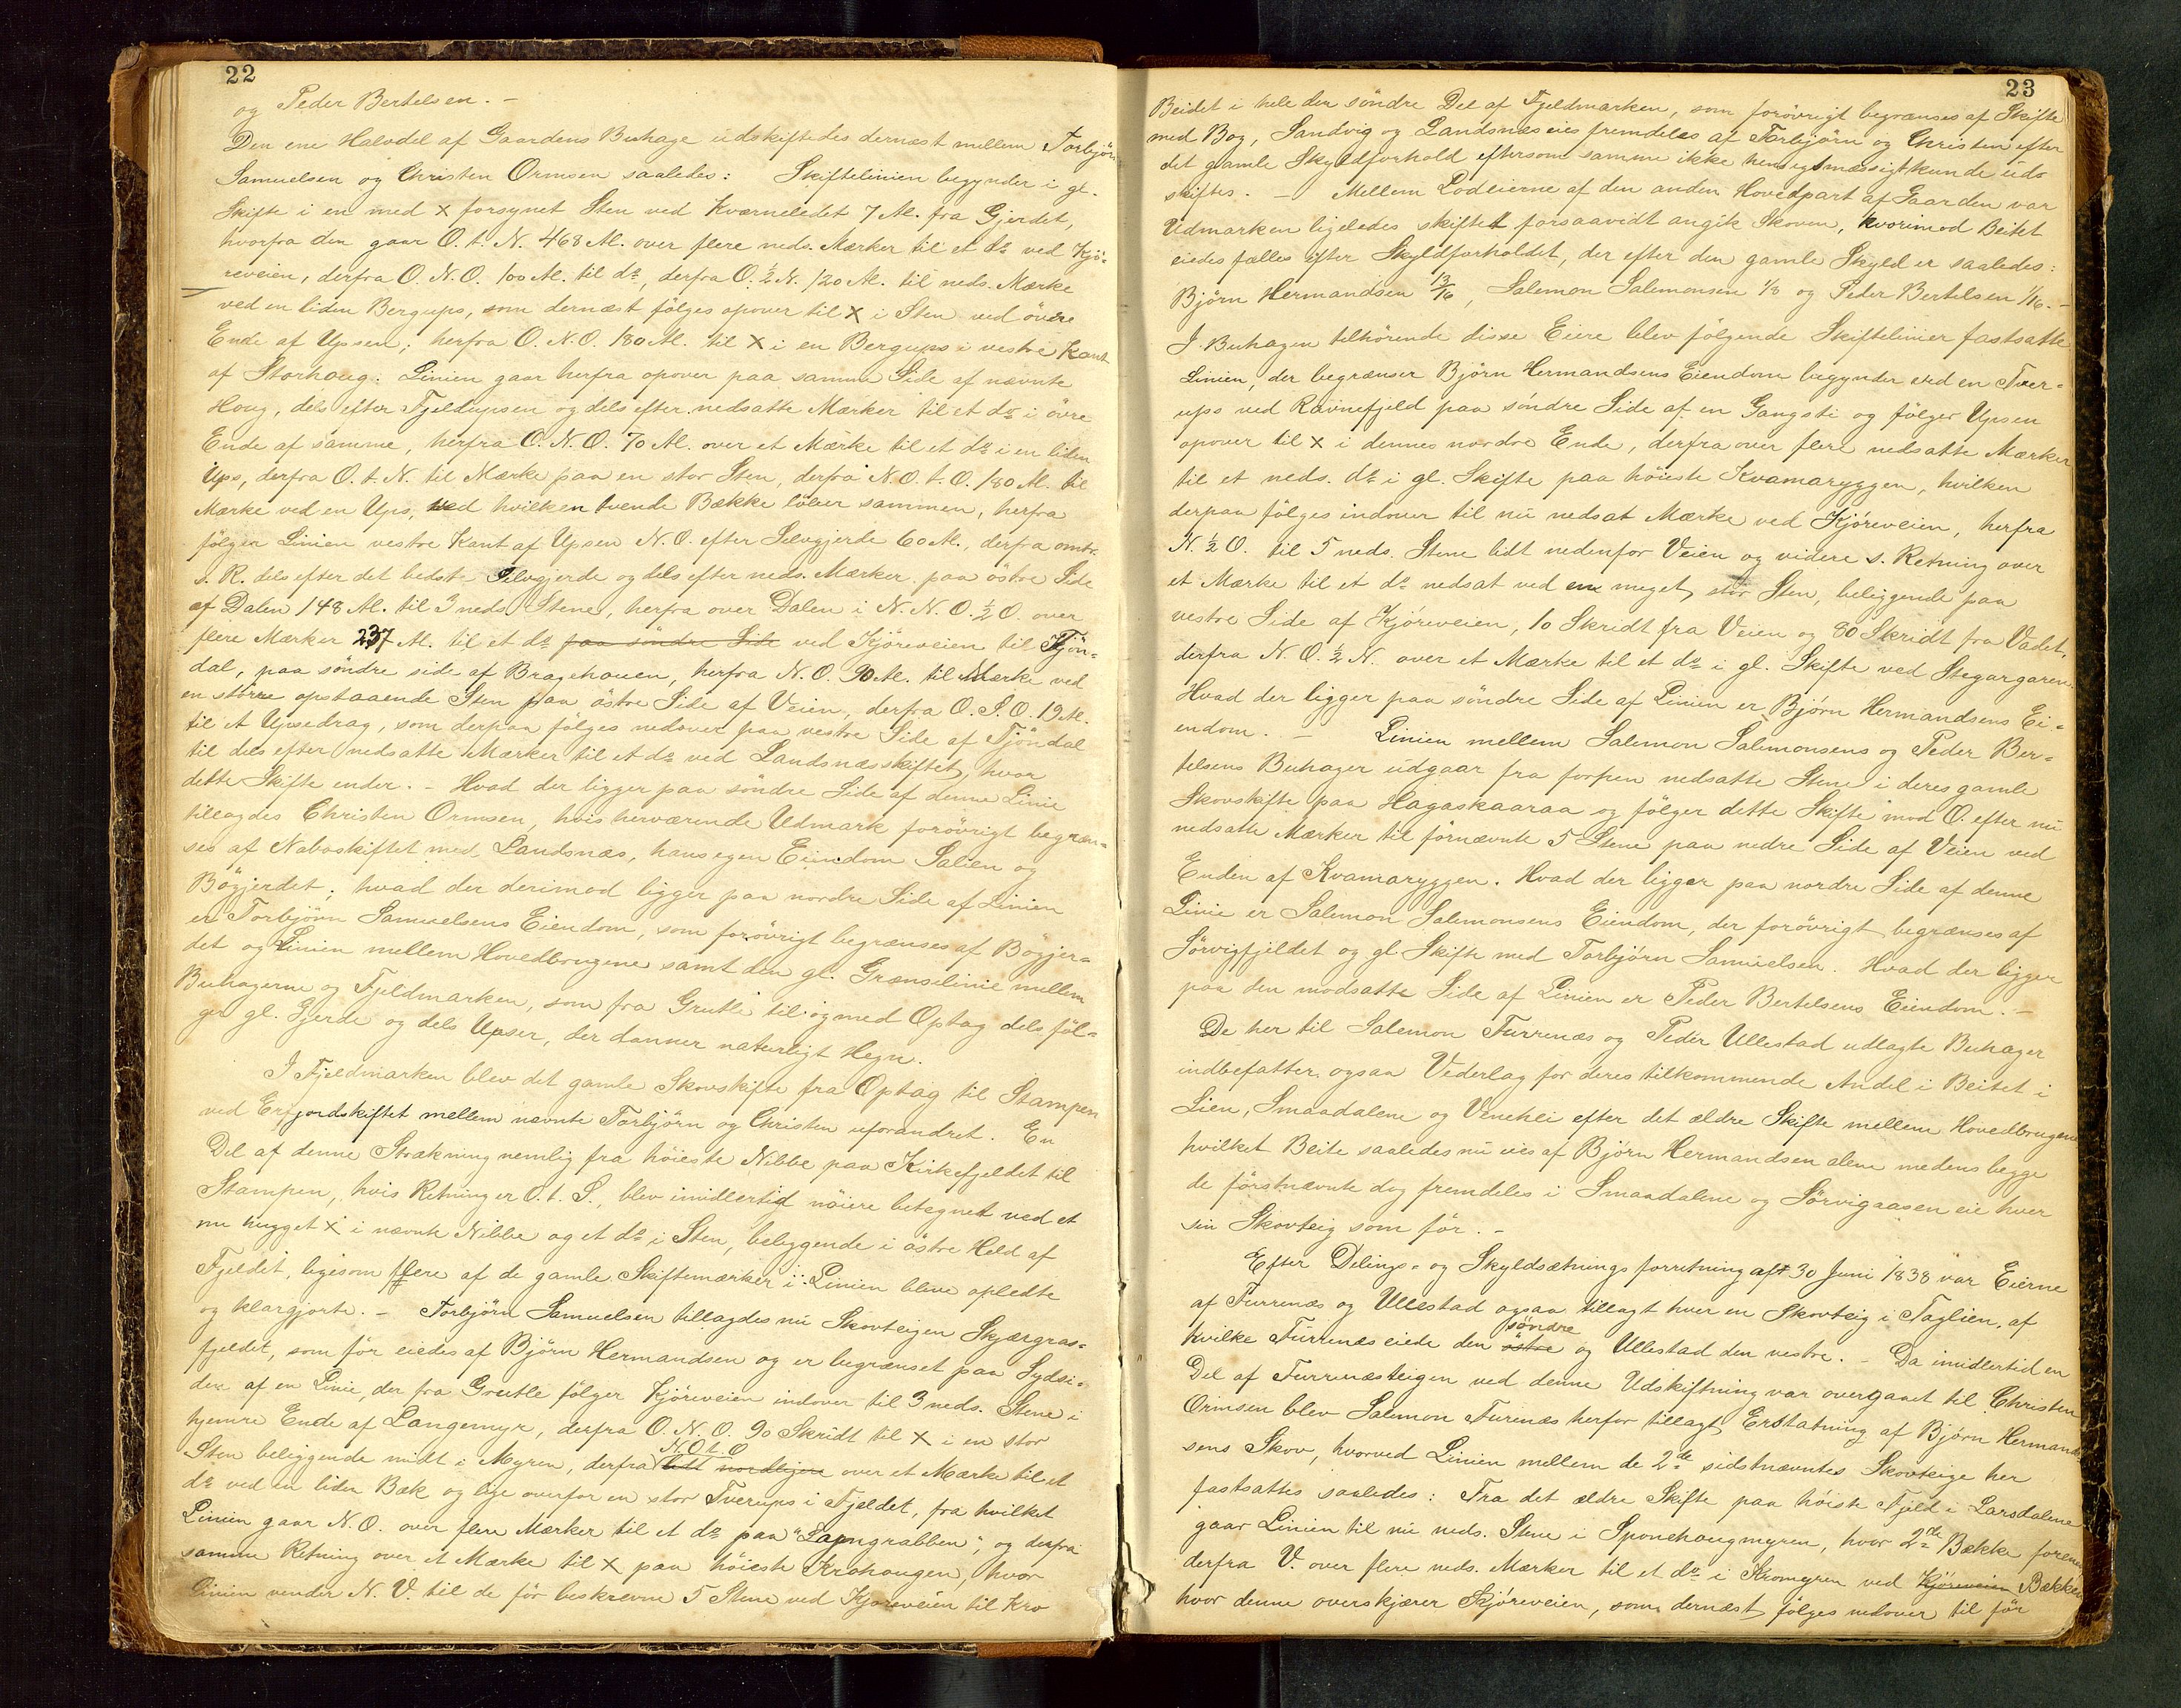 22
og Peder Bertelsen. –
Den ene Halvdel af Gaardens Buhage udskiftedes dernæst mellem Torbjörn
Samuelsen og Christen Ormsen saaledes: Skiftelinien begynder i gl.
Skifte i en med x forsynet Sten ved Kværneledet 7 Al. fra Gjerdet,
hvorfra den gaar O. t. N. 468 Al. over flere neds. Mærker til et do ved Kjö-
reveien, derfra O. N. O. 100 Al. til do, derfra O. ½ N. 120 Al. til neds. Mærke
ved en liden Bergups, som dernæst fölges opover til x i Sten ved övre
Ende af Upsen; herfra O. N. O. 180 Al. til x i en Bergups i vestre Kant
af Storhoug. Linien gaar herfra opover paa samme Side af nævnte
Houg, dels efter Fjeldupsen og dels efter nedsatte Mærker til et do i övre
Ende af samme, herfra O. N. O. 70 Al. over et Mærke til et do i en liden
Ups, derfra O. t. N. til Mærke paa en stor Sten, derfra N. O. t. O. 180 Al. til
Mærke ved en Ups, ved hvilken tvende Bække löber sammen, herfra
fölger Linien vestre Kant af Upsen N. O. efter Selvgjerde 60 Al., derfra omtr.
s. R. dels efter det bedste Selvgjerde og dels efter neds. Mærker paa östre Side
af Dalen 148 Al. til 3 neds. Stene, herfra over Dalen i N. N. O. ½ O. over
flere Mærker 237 Al. til et do paa söndre Side ved Kjöreveien til Tjön-
dal, paa söndre side af Bragehouen, herfra N. O. 90 Al. til Mærke ved
en större opstaaende Sten paa östre Side af Veien, derfra O. S. O. 19 Al.
til et Upsedrag, som derpaa fölges nedover paa vestre Side af Tjöndal
til dels efter nedsatte Mærker til et do ved Landsnæsskiftet, hvor
dette Skifte ender. – Hvad der ligger paa söndre Side af denne Linie
tillagdes Christen Ormsen, hvis herværende Udmark forövrigt begræn-
ses af Naboskiftet med Landsnæs, hans egen Eiendom Salien og
Bögjerdet; hvad der derimod ligger paa nordre Side af Linien
er Torbjörn Samuelsens Eiendom, som forövrigt begrænses af Bögjer-
det og Linien mellem Hovedbrugene samt den gl. Grænselinie mellem
Buhagerne og Fjeldmarken, som fra Grutle til og med Optag dels föl-
ger gl. Gjerde og dels Upser, der danner naturligt Hegn.
I Fjeldmarken blev det gamle Skovskifte fra Optag til Stampen
ved Erfjordskiftet mellem nævnte Torbjörn og Christen uforandret. En
Del af denne Strækning nemlig fra höieste Nibbe paa Kirkefjeldet til
Stampen, hvis Retning er O. t. S., blev imidlertid nöiere betegnet ved et
nu hugget x i nævnte Nibbe og et do i Sten, beliggende i östre Held af
Fjeldet, ligesom flere af de gamle Skiftemærker i Linien bleve opledte
og klargjorte. – Torbjörn Samuelsen tillagdes nu Skovteigen Skjærgras-
fjeldet, som för eiedes af Björn Hermandsen og er begrænset paa Sydsi-
den af en Linie, der fra Grutle fölger Kjöreveien indover til 3 neds. Stene i
hjemre Ende af Langemyr, derfra O. N. O. 90 Skridt til x i en stor
N. O. t. O
Sten beliggende midt i Myren, derfra lidt nordligere over et Mærke til et
do ved en liden Bæk og lige overfor en stor Tverups i Fjeldet, fra hvilket
Linien gaar N. O. over flere Mærker til et do paa "Lapngrabben", og derfra
samme Retning over et Mærke til x paa höieste Krohaugen, hvor
Linien vender N. V. til de för beskrevne 5 Stene ved Kjoreveien til Kro
23
Beidet i hele den söndre Del af Fjeldmarken, som forövrigt begrænses af Skifte
med Bog, Sandvig og Landsnæs eies fremdeles af Torbjörn og Christen efter
det gamle Skyldforhold eftersom samme ikke hensigtsmæssigt kunde uds
skiftes. – Mellem Lodeierne af den anden Hovedpart af Gaarden var
Udmarken ligeledes skiftet forsaavidt angik Skoven, hvorimod Beitet
eiedes fælles efter Skyldforholdet, der efter den gamle Skyld er saaledes:
Björn Hermandsen 13/16, Salemon Salemonsen 1/8 og Peder Bertelsen 1/16. –
I Buhagen tilhörende disse Eiere blev fölgende Skiftelinier fastsatte
Linien, der begrænser Björn Hermandsens Eiendom begynder ved en Tver-
ups ved Ravnefjeld paa söndre Side af en Gangsti og fölger Upsen
opover til x i dennes nordre Ende, derfra over flere nedsatte Mærker
til et neds. do i gl. Skifte paa höieste Kvamaryggen, hvilken
derpaa fölges indover til nu nedsat Mærke ved Kjöreveien, herfra
N. ½ O. til 5 neds. Stene lidt nedenfor Veien og videre s. Retning over
et Mærke til et do nedsat ved en meget stor Sten, beliggende paa
vestre Side af Kjöreveien, 10 Skridt fra Veien og 80 Skridt fra Vadet,
derfra N. O. ½ N. over et Mærke til et do i gl. Skifte ved Stegargaren.
Hvad der ligger paa söndre Side af Linien er Björn Hermandsens Ei-
endom. – Linien mellem Salemon Salemonsens og Peder Ber-
telsens Buhager udgaar fra forhen nedsatte Stene i deres gamle
Skovskifte paa Hagaskaaraa og fölger dette Skifte mod O. efter nu
nedsatte Mærker til förnævnte 5 Stene paa nedre Side af Veien ved
Enden af Kvamaryggen. Hvad der ligger paa nordre Side af denne
Linie er Salemon Salemonsens Eiendom, der forövrigt begrænses af
Sörvigfjeldet og gl. Skifte med Torbjörn Samuelsen. Hvad der ligger
paa den modsatte Side af Linien er Peder Bertelsens Eiendom. –
De her til Salemon Furrenæs og Peder Ullestad udlagte Buhager
indbefatter ogsaa Vederlag for deres tilkommende Andel i Beitet i
Lien, Smaadalene og Venehei efter det ældre Skifte mellem Hovedbrugene
hvilket Beite saaledes nu eies af Björn Hermandsen alene medens begge
de förstnævnte dog fremdeles i Smaadalene og Sörvigaasen eie hver
sin Skovteig som för. –
Efter Delings- og Skyldsætningsforretning aft 30 Juni 1838 var Eierne
af Furrenæs og Ullestad ogsaa tillagt hver en Skovteig i Taglien, af
söndre
hvilke Furrenæs eiede den östre og Ullestad den vestre. – Da imidlertid en
Del af Furrenæsteigen ved denne Udskiftning var overgaaet til Christen
Ormsen blev Salemon Furrenæs herfor tillagt Erstatning af Björn Hermand-
sens Skov, hvorved Linien mellem de 2de sidstnævntes Skovteige her
fastsattes saaledes: Fra det ældre Skifte paa höiste Fjeld i Larsdalene
gaar Linien til nu neds. Stene i Sponehougmyren, hvor 2de Bække forene
derfra V. over flere neds. Mærker til et do i Kromyren ved Kjöreveien Bækken
hvor denne overskjærer Kjöreveien, som dernæst fölges nedover til för